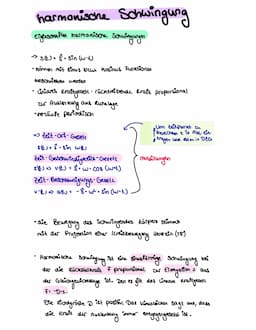 harmonische Schwingung
Eigenschaften harmonische Schwingungen
→ s(t) = ŝ · sin(ω·t)
- können mit Sinus bzw. Kosinus Funktionen
beschrieben werden
- rücktreibende Kraft proportional
zur Auslenkung aus Ruhelage
- verläuft periodisch
→ Zeit-Ort-Gesetz
s(t) = ŝ · sin ω·t
Zeit-Geschwindigkeits-Gesetz
v(t) → ŝ(t) = ŝ · ω · cos (ω·t)
Zeit-Beschleunigungs-Gesetz
v(t) → s(t) = -ŝ · ω² · sin(ω·t)
Um Zeitpunkt zu
- die Bewegung des schwingenden Körpers stimmt
mit der Projektion einer Kreisbewegung überein
- Harmonische Schwingung ist eine Schwingung bei
der die Rückstellkraft F proportional zur Elongation s aus
der Gleichgewichtslage ist. Das es für das lineare Kraftgesetz
F = -D·s
Die D ist positiv. Das Minuszeichen sagt aus, dass
die Kraft der Auslenkung immer entgegengesetzt ist.